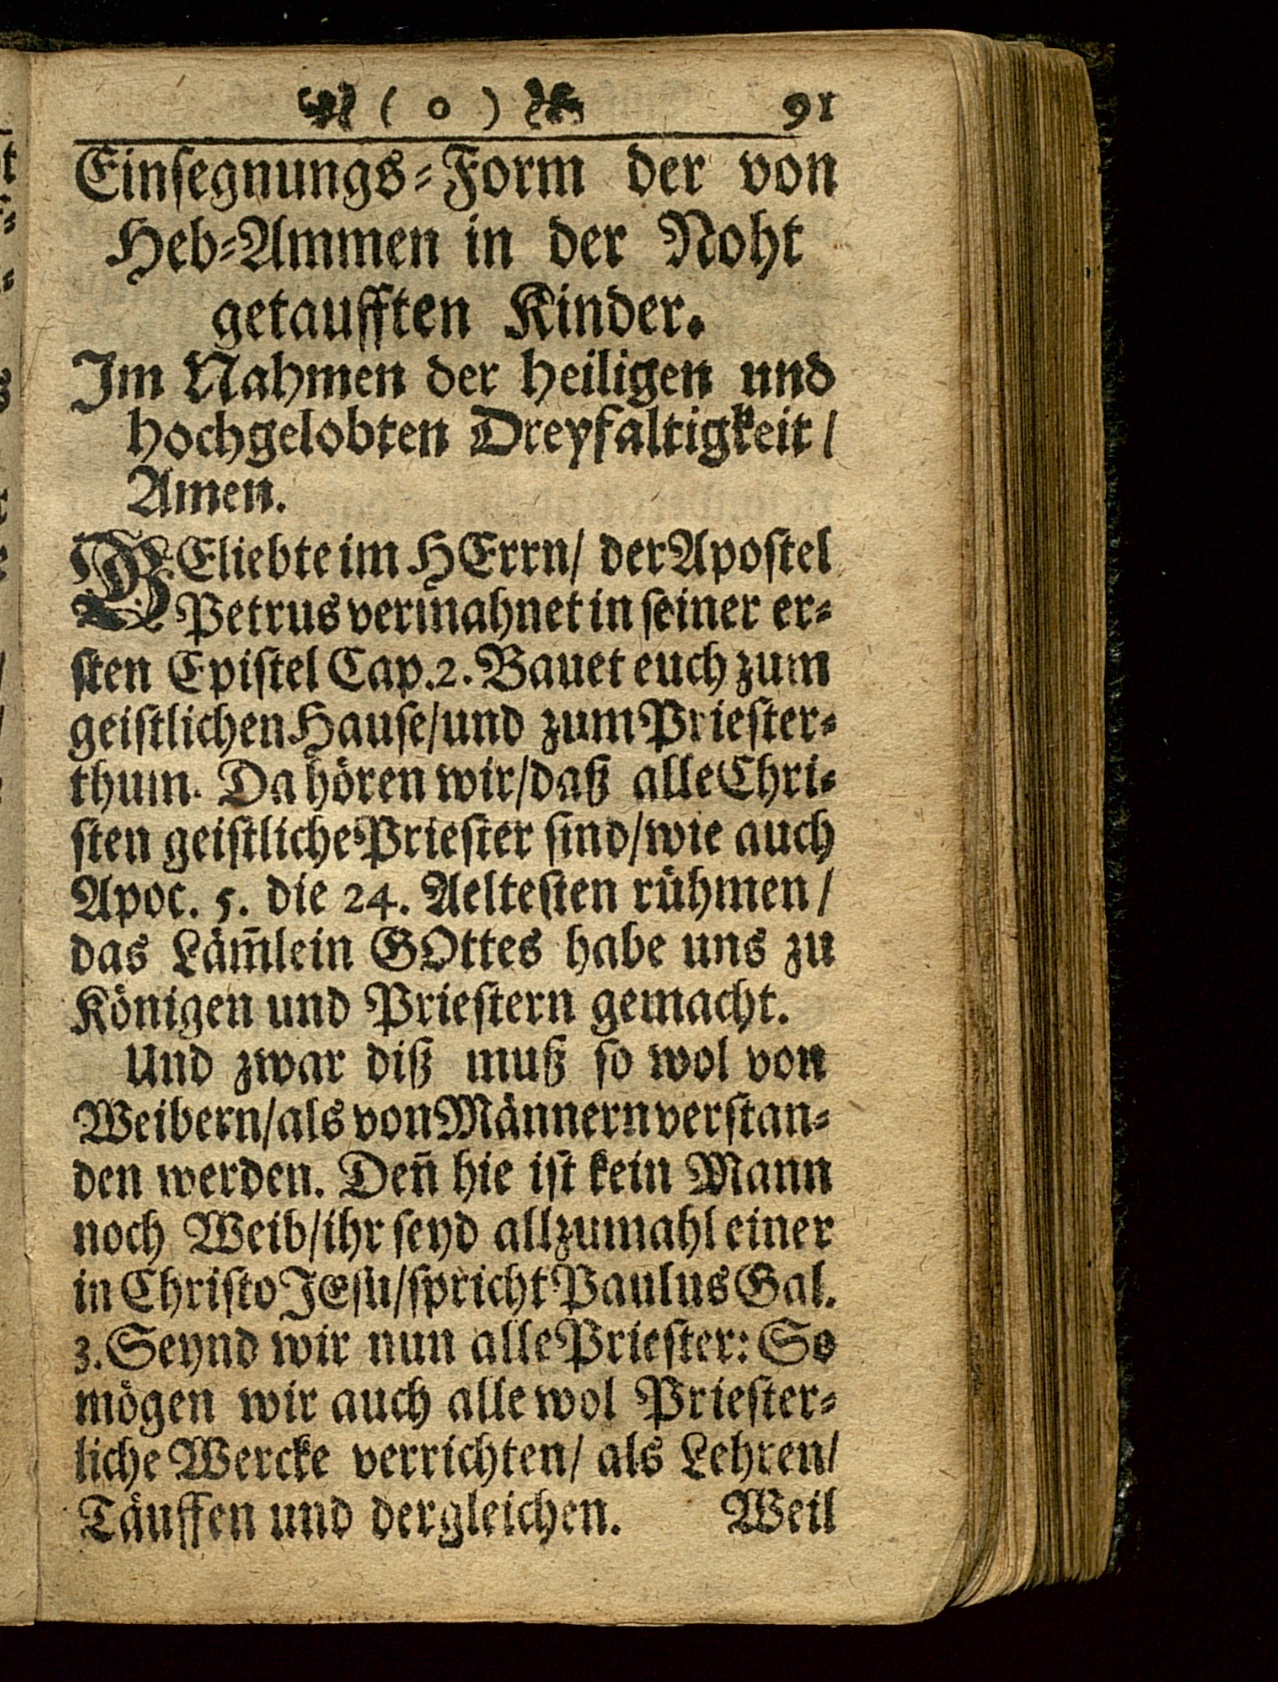 ( o ) 91
Einsegnungs-Form der von
Heb-Ammen in der Noht
getaufften Kinder.
Im Nahmen der heiligen und
hochgelobten Dreyfaltigkeit /
Amen.
GEliebte im HErrn/ der Apostel
Petrus vermahnet in seiner er-
sten Epistel Cap. 2. Bauet euch zum
geistlichen Hause/und zum Priester-
thum. Da hören wir/daß alle Chri-
sten geistliche Priester sind/wie auch
Apoc. 5. die 24. Aeltesten rühmen /
das Läm̃lein GOttes habe uns zu
Königen und Priestern gemacht.
Und zwar diß muß so wol von
Weibern/als von Männern verstan-
den werden. Deñ hie ist kein Mann
noch Weib/ihr seyd allzumahl einer
in Christo JEsu/spricht Paulus Gal.
3. Seynd wir nun alle Priester: So
mögen wir auch alle wol Priester-
liche Wercke verrichten/ als Lehren/
Täuffen und dergleichen. Weil